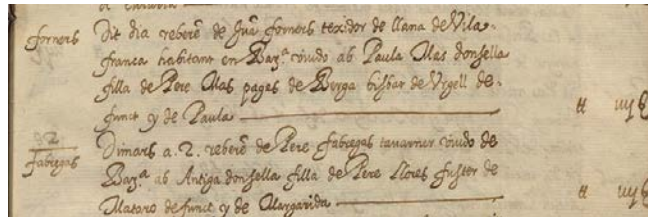 forners Dit dia rebere de Jua forners texidor de llana de Vila
franca habitant en Bar.ª viudo ab Paula Mas donsella
filla de Pere Mas pages de Berga bisbat de Vrgell de-
funct y de Paula
a 2 Dimars a. 2. rebere de Pere fabregas tauarner viudo de
fabregas Bar.ª ab Antiga donsella filla de Pere Llores fuster de
Mataro defunct y de Margarida